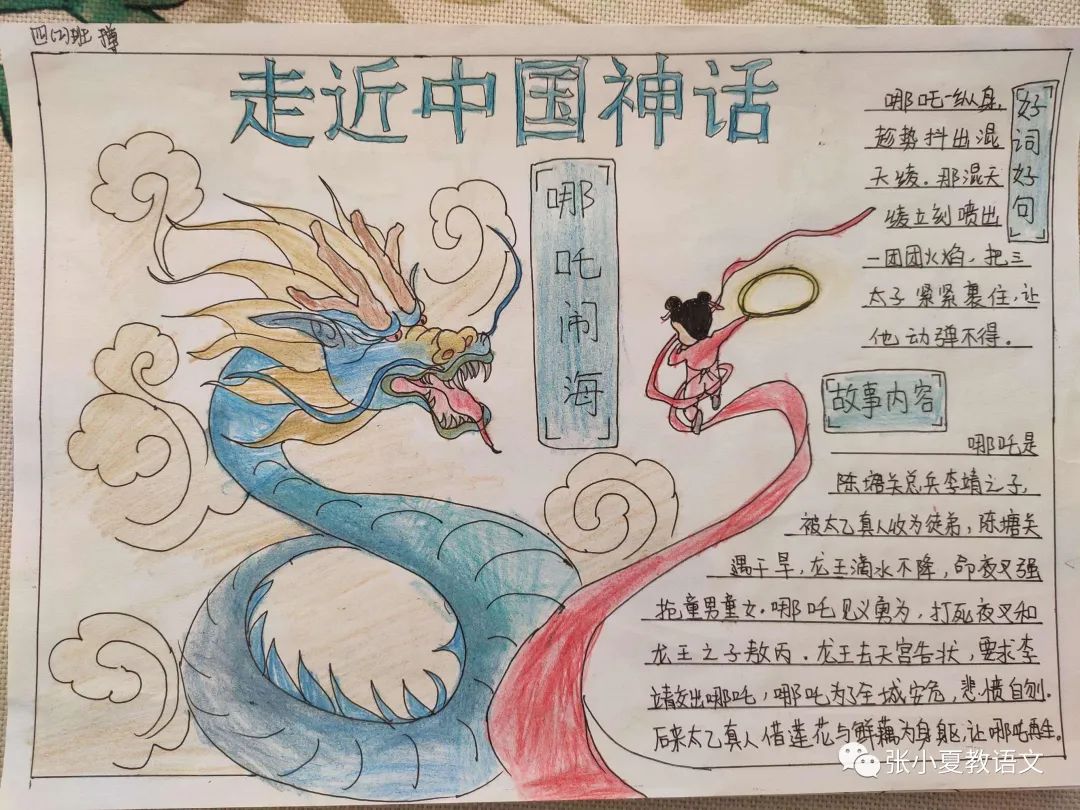 四(2)班
走近中国神话
哪吒闹海
好词好句
哪吒一纵身,
趁势抖出混
天绫.那混天
绫立刻喷出
一团团火焰,把三
太子紧紧裹住,让
他动弹不得。
故事内容
哪吒是
陈塘关总兵李靖之子,
被太乙真人收为徒弟,陈塘关
遇干旱,龙王滴水不降,命夜叉强
抢童男童女.哪吒见义勇为,打死夜叉和
龙王之子敖丙.龙王去天宫告状,要求李
靖交出哪吒,哪吒为了全城安危,悲愤自刎.
后来太乙真人借莲花与鲜藕为身躯,让哪吒再生。
张小夏教语文